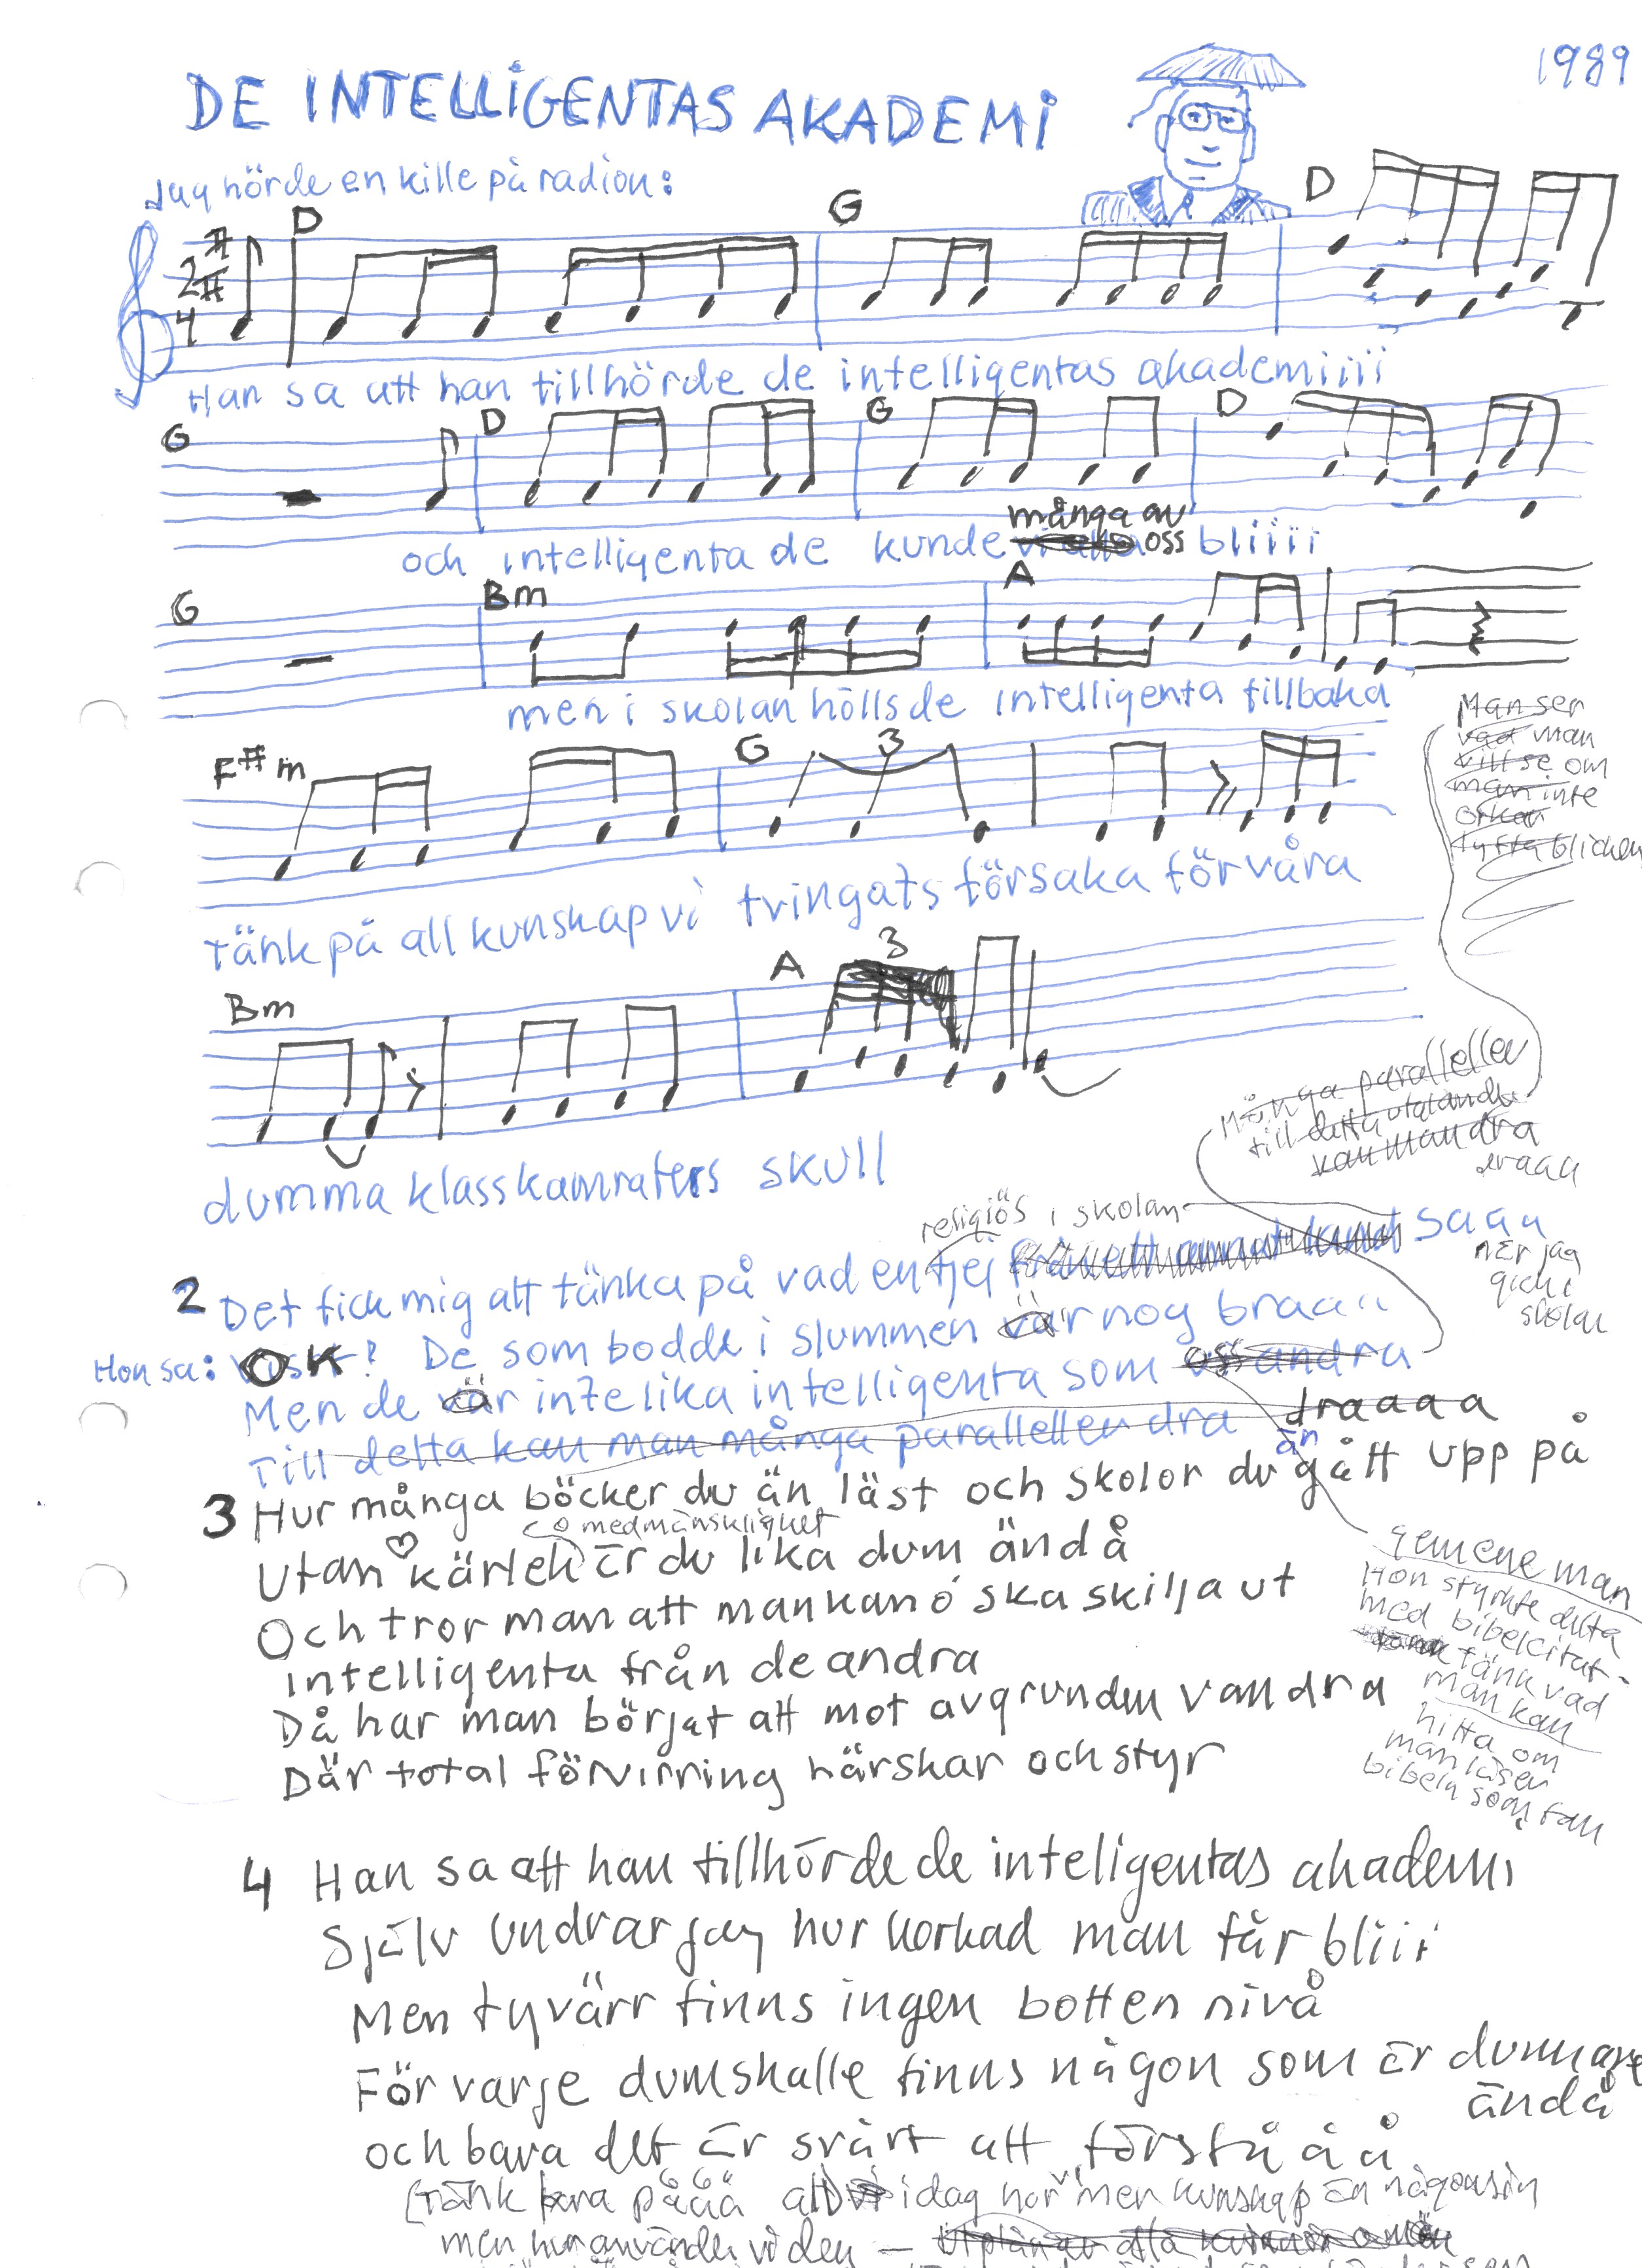 DE INTELLIGENTAS AKADEMI
1989
Jag hörde en kille på radion:
D G D
2
4
Han sa att han tillhörde de intelligentas akademiiii
G D G D
många av
och intelligenta de kunde oss bliiii
G Bm A
men i skolan hölls de intelligenta tillbaka
F#m G 3
tänk på all kunskap vi tvingats försaka för våra
Bm A 3
dumma klasskamraters skull
Man ser
vad man
vill se om
man inte
orkar
lyfta blicken
Många paralleller
till detta uttalande
kan man dra
draaa
religiös i skolan
2 Det fick mig att tänka på vad en tjej saaa
när jag
gick i
skolan
Hon sa: OK? De som bodde i slummen är nog braaa
Men de är inte lika intelligenta som oss andra
Till detta kan man många paralleller dra draaaa
3 Hur många böcker du än läst och skolor du än gått upp på
o medmänsklighet
Utan kärlek är du lika dum ändå
Och tror man att man kan ó ska skilja ut
intelligenta från de andra
Då har man börjat att mot avgrunden vandra
Där total förvirring härskar och styr
gemene man
Hon styrkte detta
med bibelcitat -
tänk vad
man kan
hitta om
man läser
bibeln som fan
4 Han sa att han tillhörde de inteligentas akademi
Själv undrar jag hur korkad man får bliii
Men tyvärr finns ingen botten nivå
För varje dumskalle finns någon som är dummare
ändå
och bara det är svårt att förståååå
(Tänk bara påååå att idag har vi mer kunskap än någonsin
men hur använder vi den —